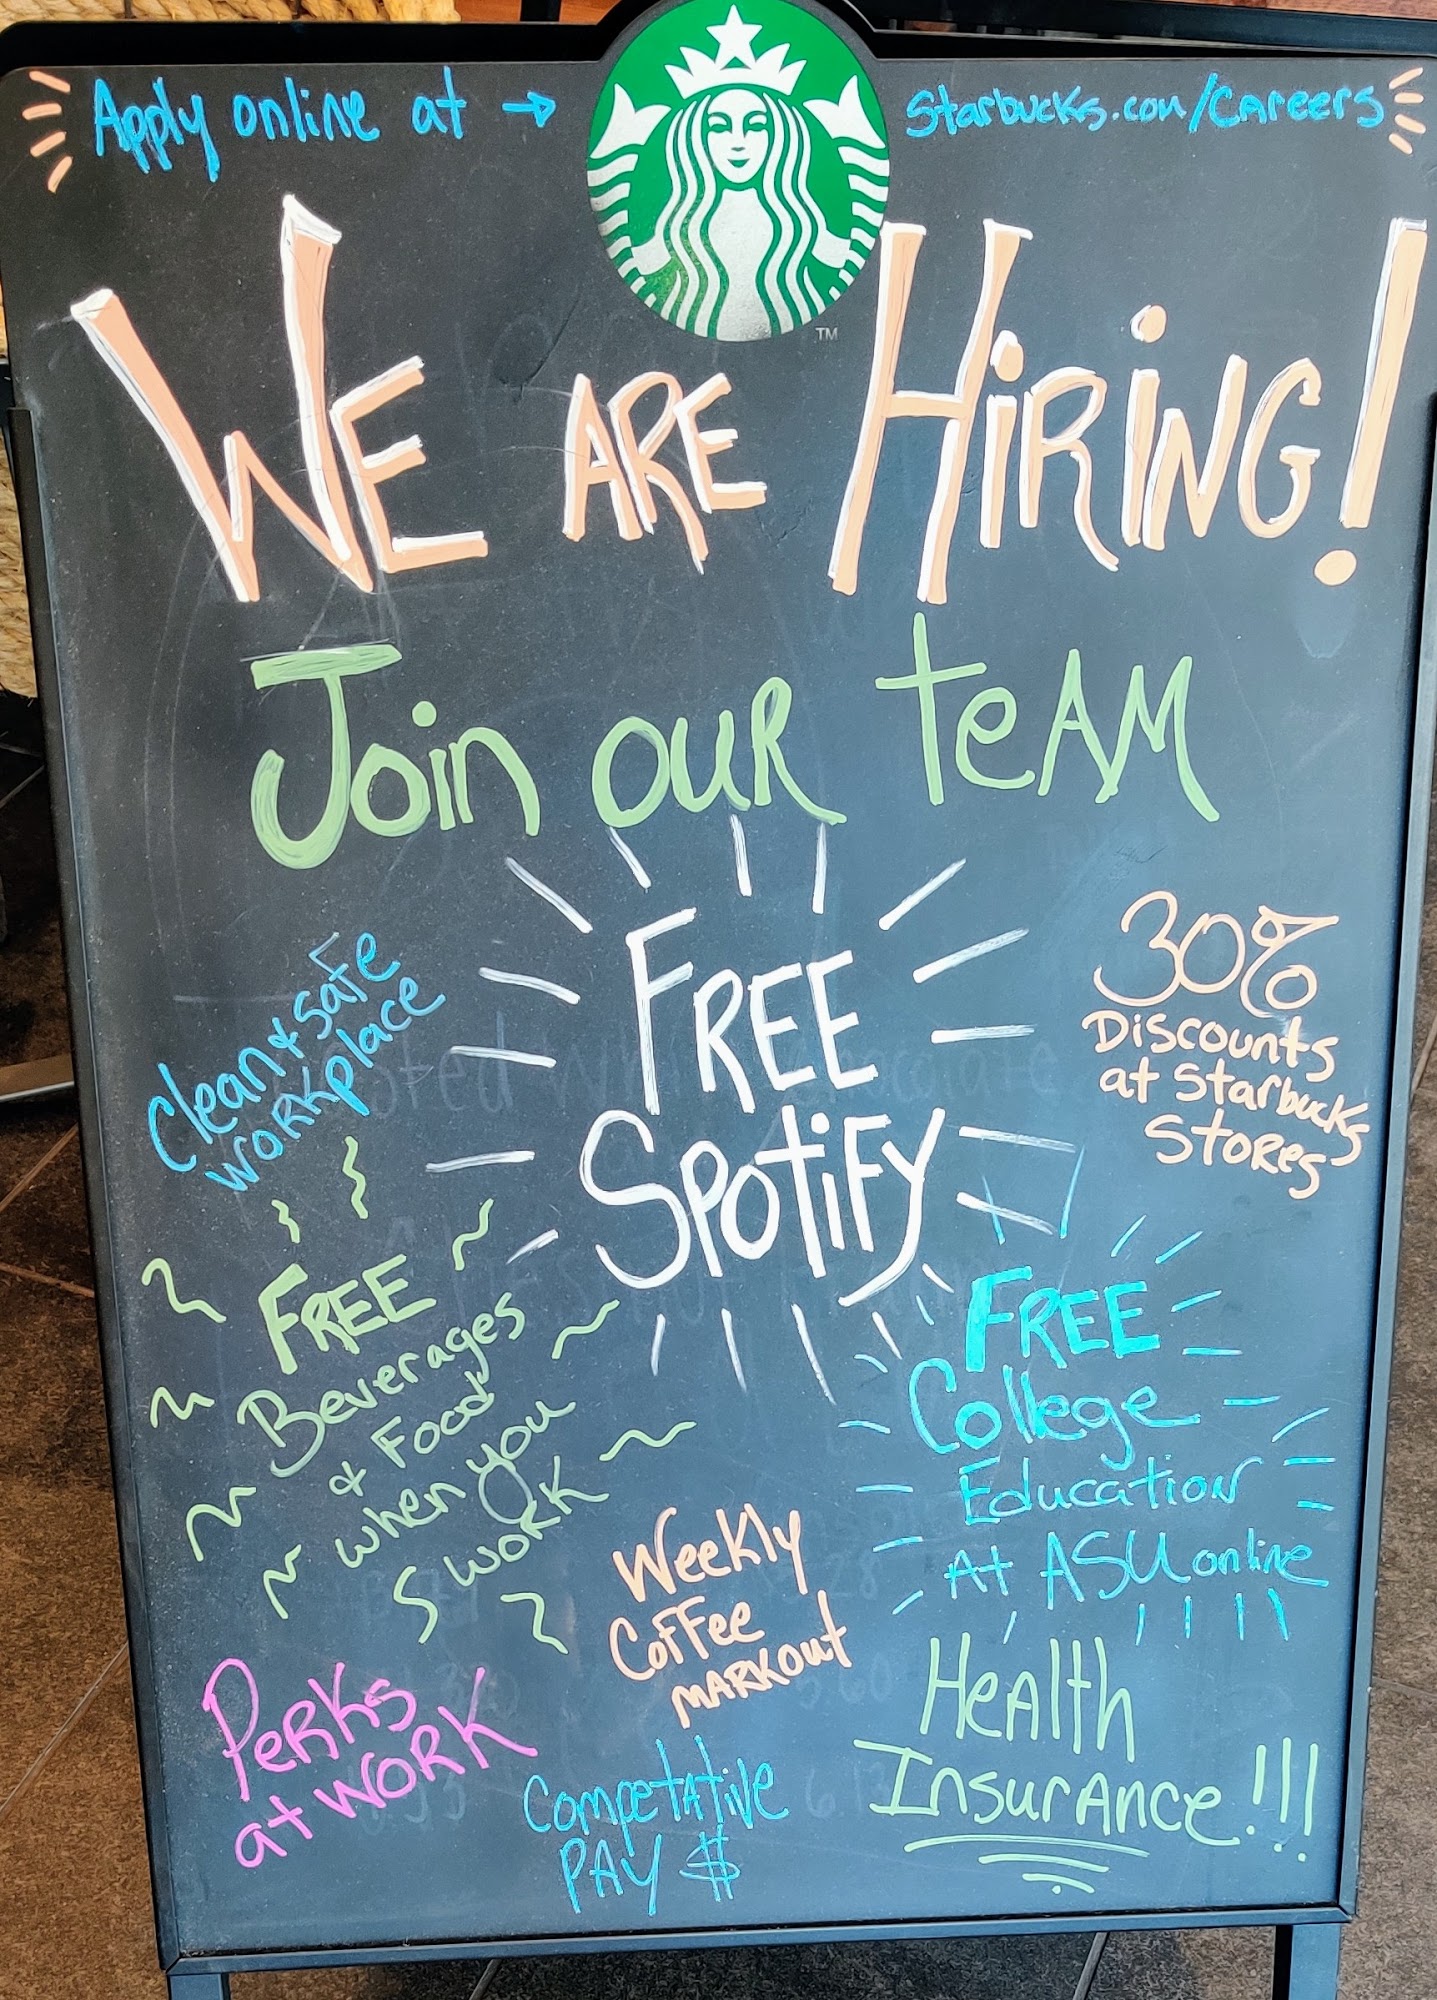 Apply online at → Starbucks.com/Careers
We are Hiring!
Join our team
Clean & safe
workplace
Free
Spotify
30%
Discounts
at Starbucks
Stores
FREE
Beverages
& Food
when you
work
FREE
College
Education
At ASU online
Weekly
Coffee
markout
Perks
at work
Competative
Pay $
Health
Insurance!!!
TM